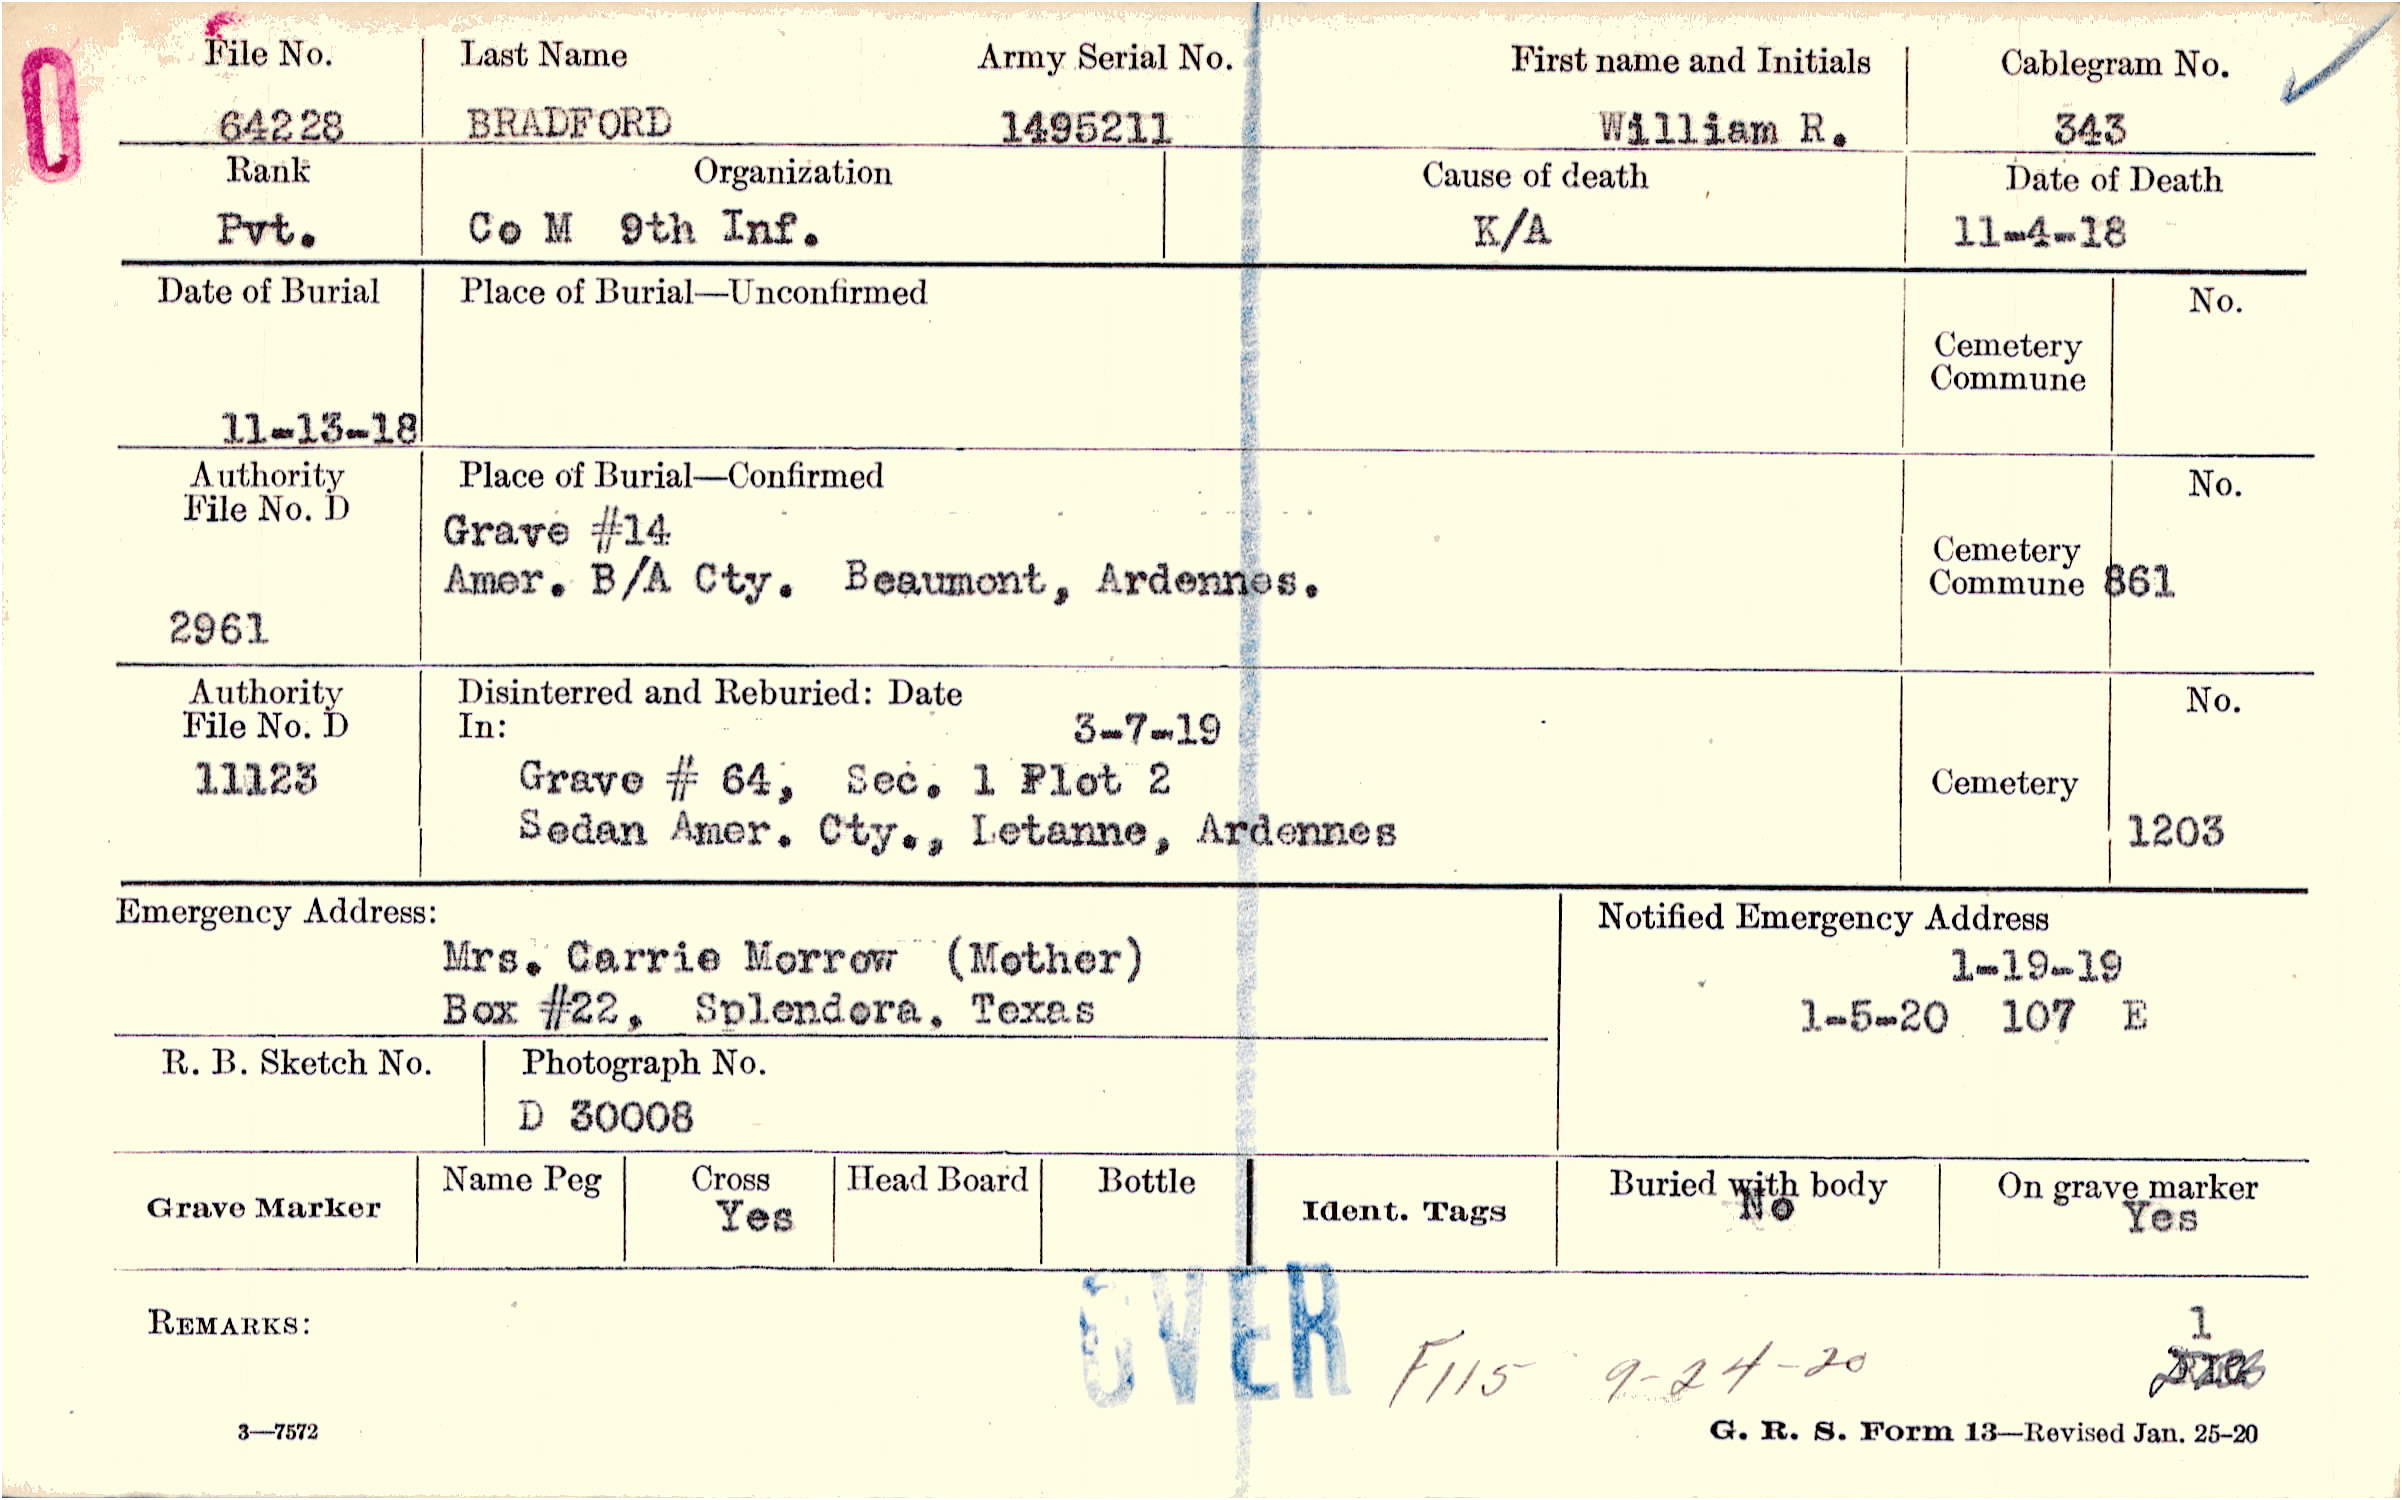 File No. Last Name Army Serial No. First name and Initials Cablegram No.
64228 BRADFORD 1495211 William R. 343
Rank Organization Cause of death Date of Death
Pvt. Co M 9th Inf. K/A 11-4-18
Date of Burial Place of Burial—Unconfirmed No.
Cemetery
Commune
11-13-18
Authority Place of Burial—Confirmed No.
File No. D
Grave #14
Amer. B/A Cty. Beaumont, Ardennes.
Cemetery
Commune 861
2961
Authority Disinterred and Reburied: Date No.
File No. D In: 3-7-19
11123 Grave # 64, Sec. 1 Plot 2 Cemetery
Sedan Amer. Cty., Letanne, Ardennes 1203
Emergency Address: Notified Emergency Address
Mrs. Carrie Morrow (Mother) 1-19-19
Box #22, Splendora, Texas 1-5-20 107 E
R. B. Sketch No. Photograph No.
D 30008
Grave Marker Name Peg Cross Head Board Bottle Ident. Tags Buried with body On grave marker
Yes No Yes
OVER
REMARKS: 1
F115 9-24-20
3—7572 G. R. S. Form 13—Revised Jan. 25-20